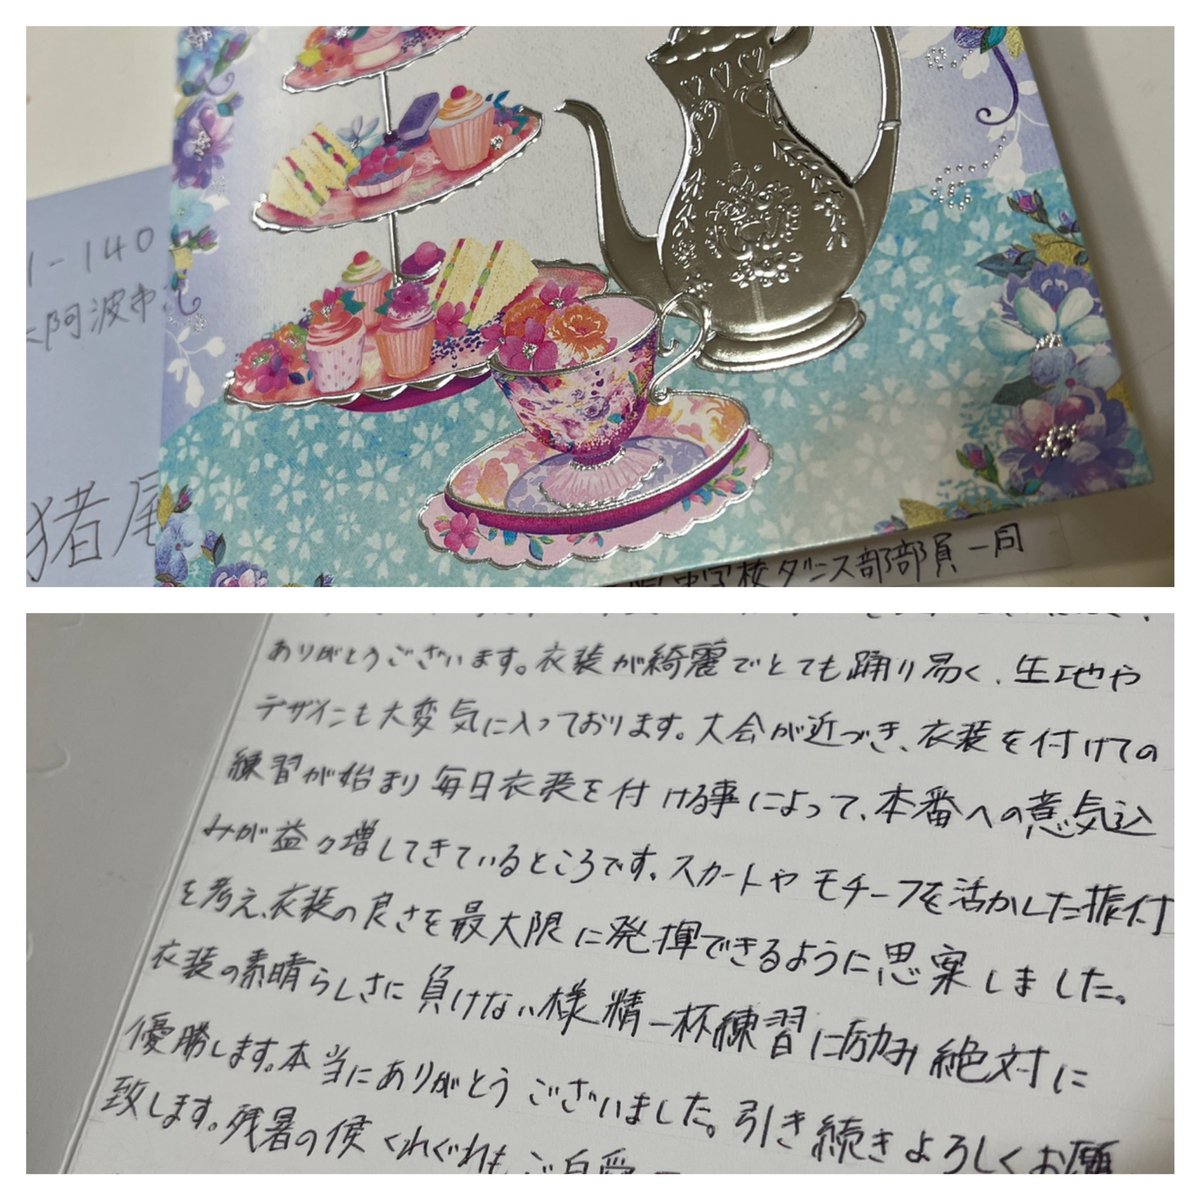 1-140
阿波市
猪尾
中学校ダンス部部員一同
ありがとうございます。衣装が綺麗でとても踊り易く、生地や
デザインも大変気に入っております。大会が近づき、衣装を付けての
練習が始まり毎日衣装を付ける事によって、本番への意気込
みが益々増してきているところです。スカートやモチーフを活かした振付
を考え、衣装の良さを最大限に発揮できるように思案しました。
衣装の素晴らしさに負けない様精一杯練習に励み絶対に
優勝します。本当にありがとうございました。引き続きよろしくお願
致します。残暑の候くれぐれもご自愛